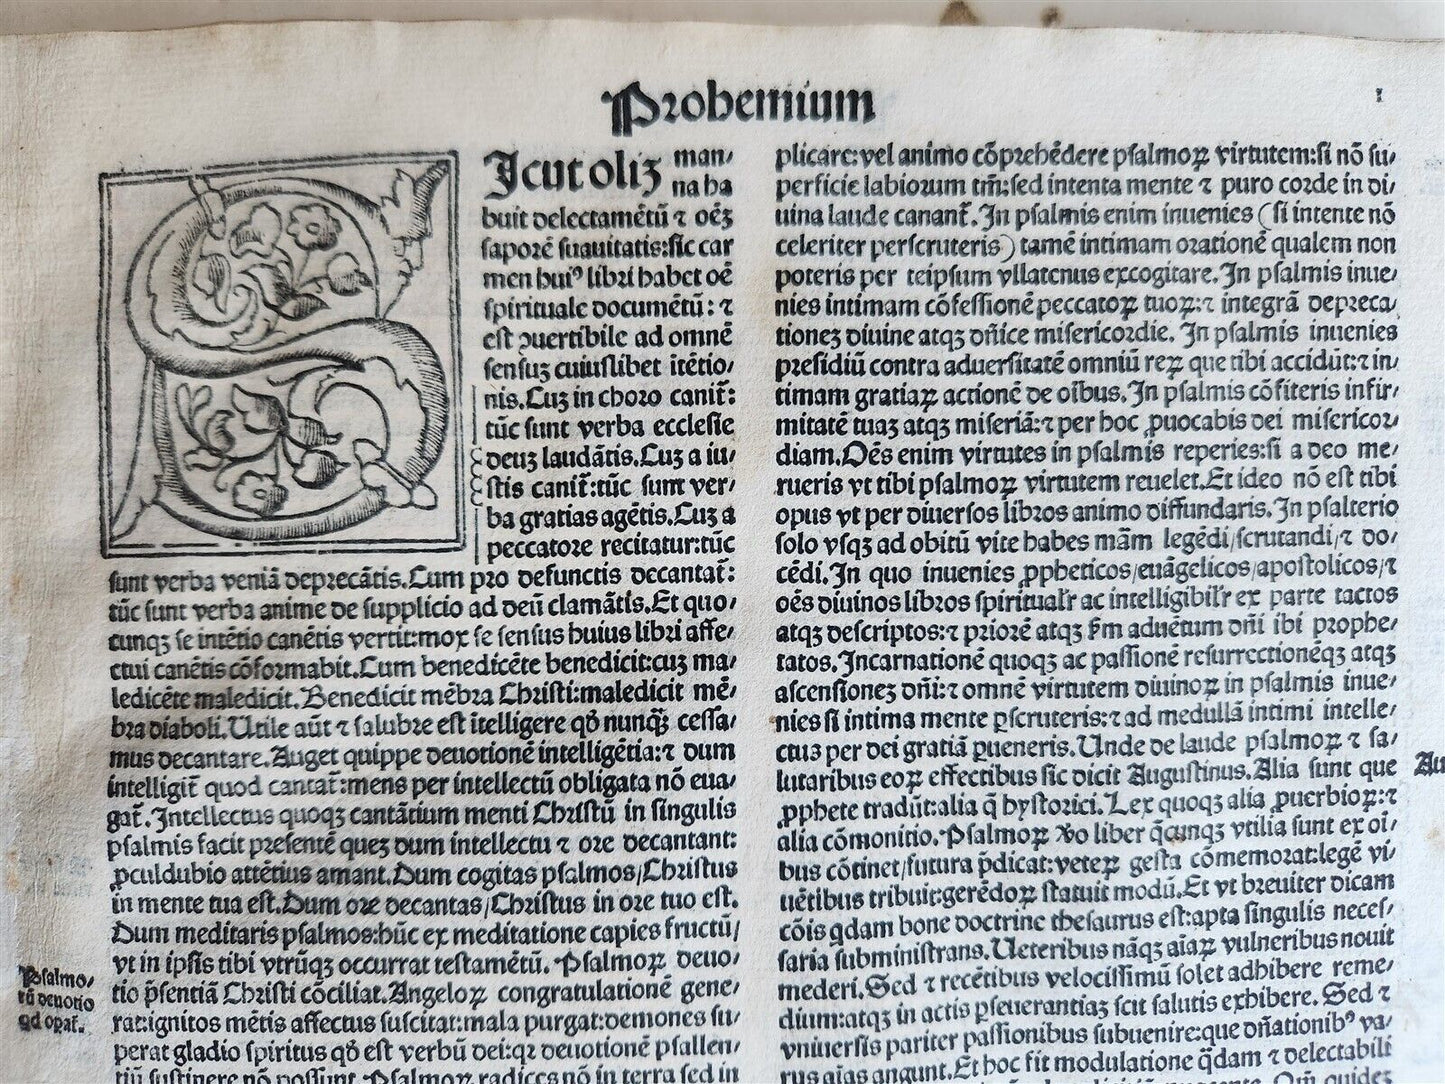 Prohemium
I
Sicut oliʒ man⸗
na ha
buit delectamētū ⁊ oēʒ
saporē suauitatis:sic car
men huiꝰ libri habet oē
spirituale documētū: ⁊
est ꝯuertibile ad omnē
sensuʒ cuiuslibet itētio⸗
nis.Cuʒ in choro canit̄:
tūc sunt verba ecclesie
deuʒ laudātis.Cuʒ a iu⸗
stis canit̄:tūc sunt ver⸗
ba gratias agētis.Cuʒ a
peccatore recitatur:tūc
sunt verba veniā deprecātis.Cum pro defunctis decantat̄:
tūc sunt verba anime de supplicio ad deū clamātis.Et quo⸗
cunqʒ se intētio canētis vertit:mox se sensus huius libri affe⸗
ctui canētis cōformabit.Cum benedicēte benedicit:cuʒ ma⸗
ledicēte maledicit.Benedicit mēbra Christi:maledicit mē⸗
bra diaboli.Utile aūt ⁊ salubre est ītelligere qđ nunqʒ̄ cessa⸗
mus decantare.Auget quippe deuotionē intelligētia:⁊ dum
intelligit̄ quod cantat̄:mens per intellectū obligata nō eua⸗
gat̄.Intellectus quoqʒ cantātium menti Christū in singulis
psalmis facit presentē queʒ dum intellectu ⁊ ore decantant:
ꝓculdubio attētius amant.Dum cogitas psalmos/Christus
in mente tua est.Dum ore decantas/Christus in ore tuo est.
Dum meditaris psalmos:hūc ex meditatione capies fructū/
vt in ipsis tibi vtrūqʒ occurrat testamētū. Psalmoꝝ deuo⸗
tio p̄sentiā Christi cōciliat.Angeloꝝ congratulationē gene⸗
rat:ignitos mētis affectus suscitat:mala purgat:demones su⸗
perat gladio spiritus qđ est verbū dei:qꝛ deuotionē psallen⸗
tiū sustinere nō possunt.Psalmoꝝ radices nō in terra sed in
Psalmo⸗
rū deuotio
qd opat̄.
plicare:vel animo cōprehēdere psalmoꝝ virtutem:si nō su⸗
perficie labiorum tm̄:sed intenta mente ⁊ puro corde in di⸗
uina laude canant̄.In psalmis enim inuenies (si intente nō
celeriter perscruteris) tamē intimam orationē qualem non
poteris per teipsum vllatenus excogitare.In psalmis inue⸗
nies intimam cōfessionē peccatoꝝ tuoꝝ:⁊ integrā depreca
tioneʒ diuine atqʒ dn̄ice misericordie. In psalmis inuenies
presidiū contra aduersitatē omniū reꝝ que tibi accidūt:⁊ in⸗
timam gratiaꝝ actionē de oībus.In psalmis cōfiteris infir⸗
mitatē tuaʒ atqʒ miseriā:⁊ per hoc ꝓuocabis dei misericor⸗
diam.Oēs enim virtutes in psalmis reperies:si a deo me⸗
rueris vt tibi psalmoꝝ virtutem reuelet.Et ideo nō est tibi
opus vt per diuersos libros animo diffundaris.In psalterio
solo vsqʒ ad obitū vite habes mām legēdi/scrutandi/⁊ do⸗
cēdi.In quo inuenies ꝓpheticos/euāgelicos/apostolicos/⁊
oēs diuinos libros spiritualr̄ ac intelligibilr̄ ex parte tactos
atqʒ descriptos:⁊ priorē atqʒ sm̄ aduētum dn̄i ibi prophe⸗
tatos.Incarnationē quoqʒ ac passionē resurrectionēqʒ atqʒ
ascensioneʒ dn̄i:⁊ omnē virtutem diuinoꝝ in psalmis inue⸗
nies si intima mente ꝑscruteris:⁊ ad medullā intimi intelle⸗
ctus per dei gratiā ꝑueneris.Unde de laude psalmoꝝ ⁊ sa⸗
lutaribus eoꝝ effectibus sic dicit Augustinus.Alia sunt que
Au
ꝓphete tradūt:alia q̄ hystorici.Lex quoqʒ alia ꝓuerbioꝝ:⁊
alia cōmonitio.Psalmoꝝ v̊o liber q̄cunqʒ vtilia sunt ex oī⸗
bus cōtinet/futura p̄dicat:veteꝝ gesta cōmemorat:legē vi⸗
uētibus tribuit:gerēdoꝝ statuit modū.Et vt breuiter dicam
cōis qdam bone doctrine thesaurus est:apta singulis neces⸗
saria subministrans.Ueteribus nāqʒ aīaꝝ vulneribus nouit
mederi.Sed ⁊ recētibus velocissimū solet adhibere reme⸗
dium:atqʒ in actis ꝑseuerantiaʒ scit salutis exhibere. Sed ⁊
vniuersis pariter passionibus subuenire:que dn̄ationibꝰ va⸗
rijs aīas angunt.Et hoc fit modulatione q̄dam ⁊ delectabili